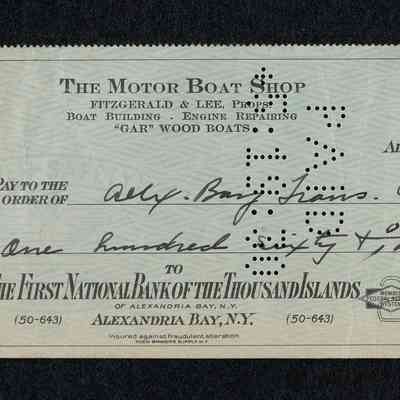 THE MOTOR BOAT SHOP
FITZGERALD & LEE, PROPS.
BOAT BUILDING - ENGINE REPAIRING
"GAR" WOOD BOATS
PAID
AL
PAY TO THE
ORDER OF
Alex. Bay Trans.
One hundred sixty &
TO
THE FIRST NATIONAL BANK OF THE THOUSAND ISLANDS
OF ALEXANDRIA BAY, N.Y.
(50-643) ALEXANDRIA BAY, N.Y. (50-643)
MEMBER
FEDERAL RESERVE
SYSTEM
Insured against fraudulent alteration